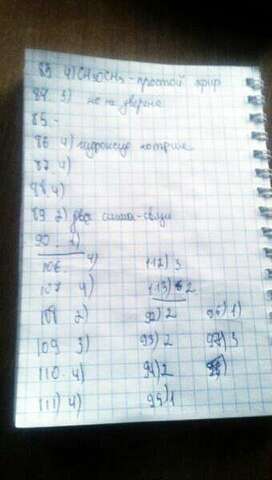 83 4) CH3OCH3 - простой эфир
84 3) но не уверена
85 -
86 4) гидроксид натрия
87 4)
88 4)
89 2) два сигма-связи
90. 2)
106. 4)
107 4)
108 2)
109 3)
110. 4)
111) 4)
112) 3
113) 2
92) 2
93) 2
94) 2
95) 1
96) 1)
97) 3